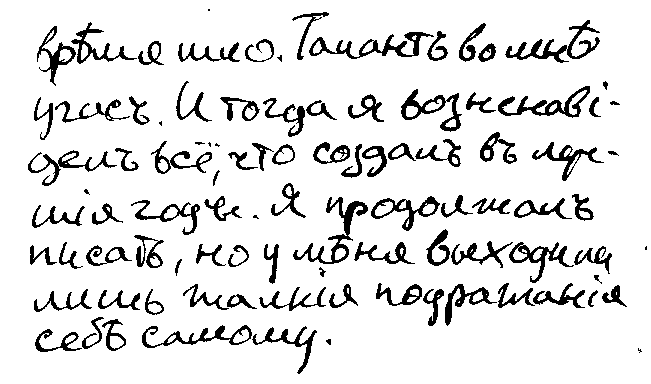 врѣмя шло. Талантъ во мнѣ
угасъ. И тогда я возненаві-
делъ всё, что создалъ въ луч-
шія годы. Я продолжалъ
писать, но у мѣня выходили
лишь жалкія подражанія
себѣ самому.